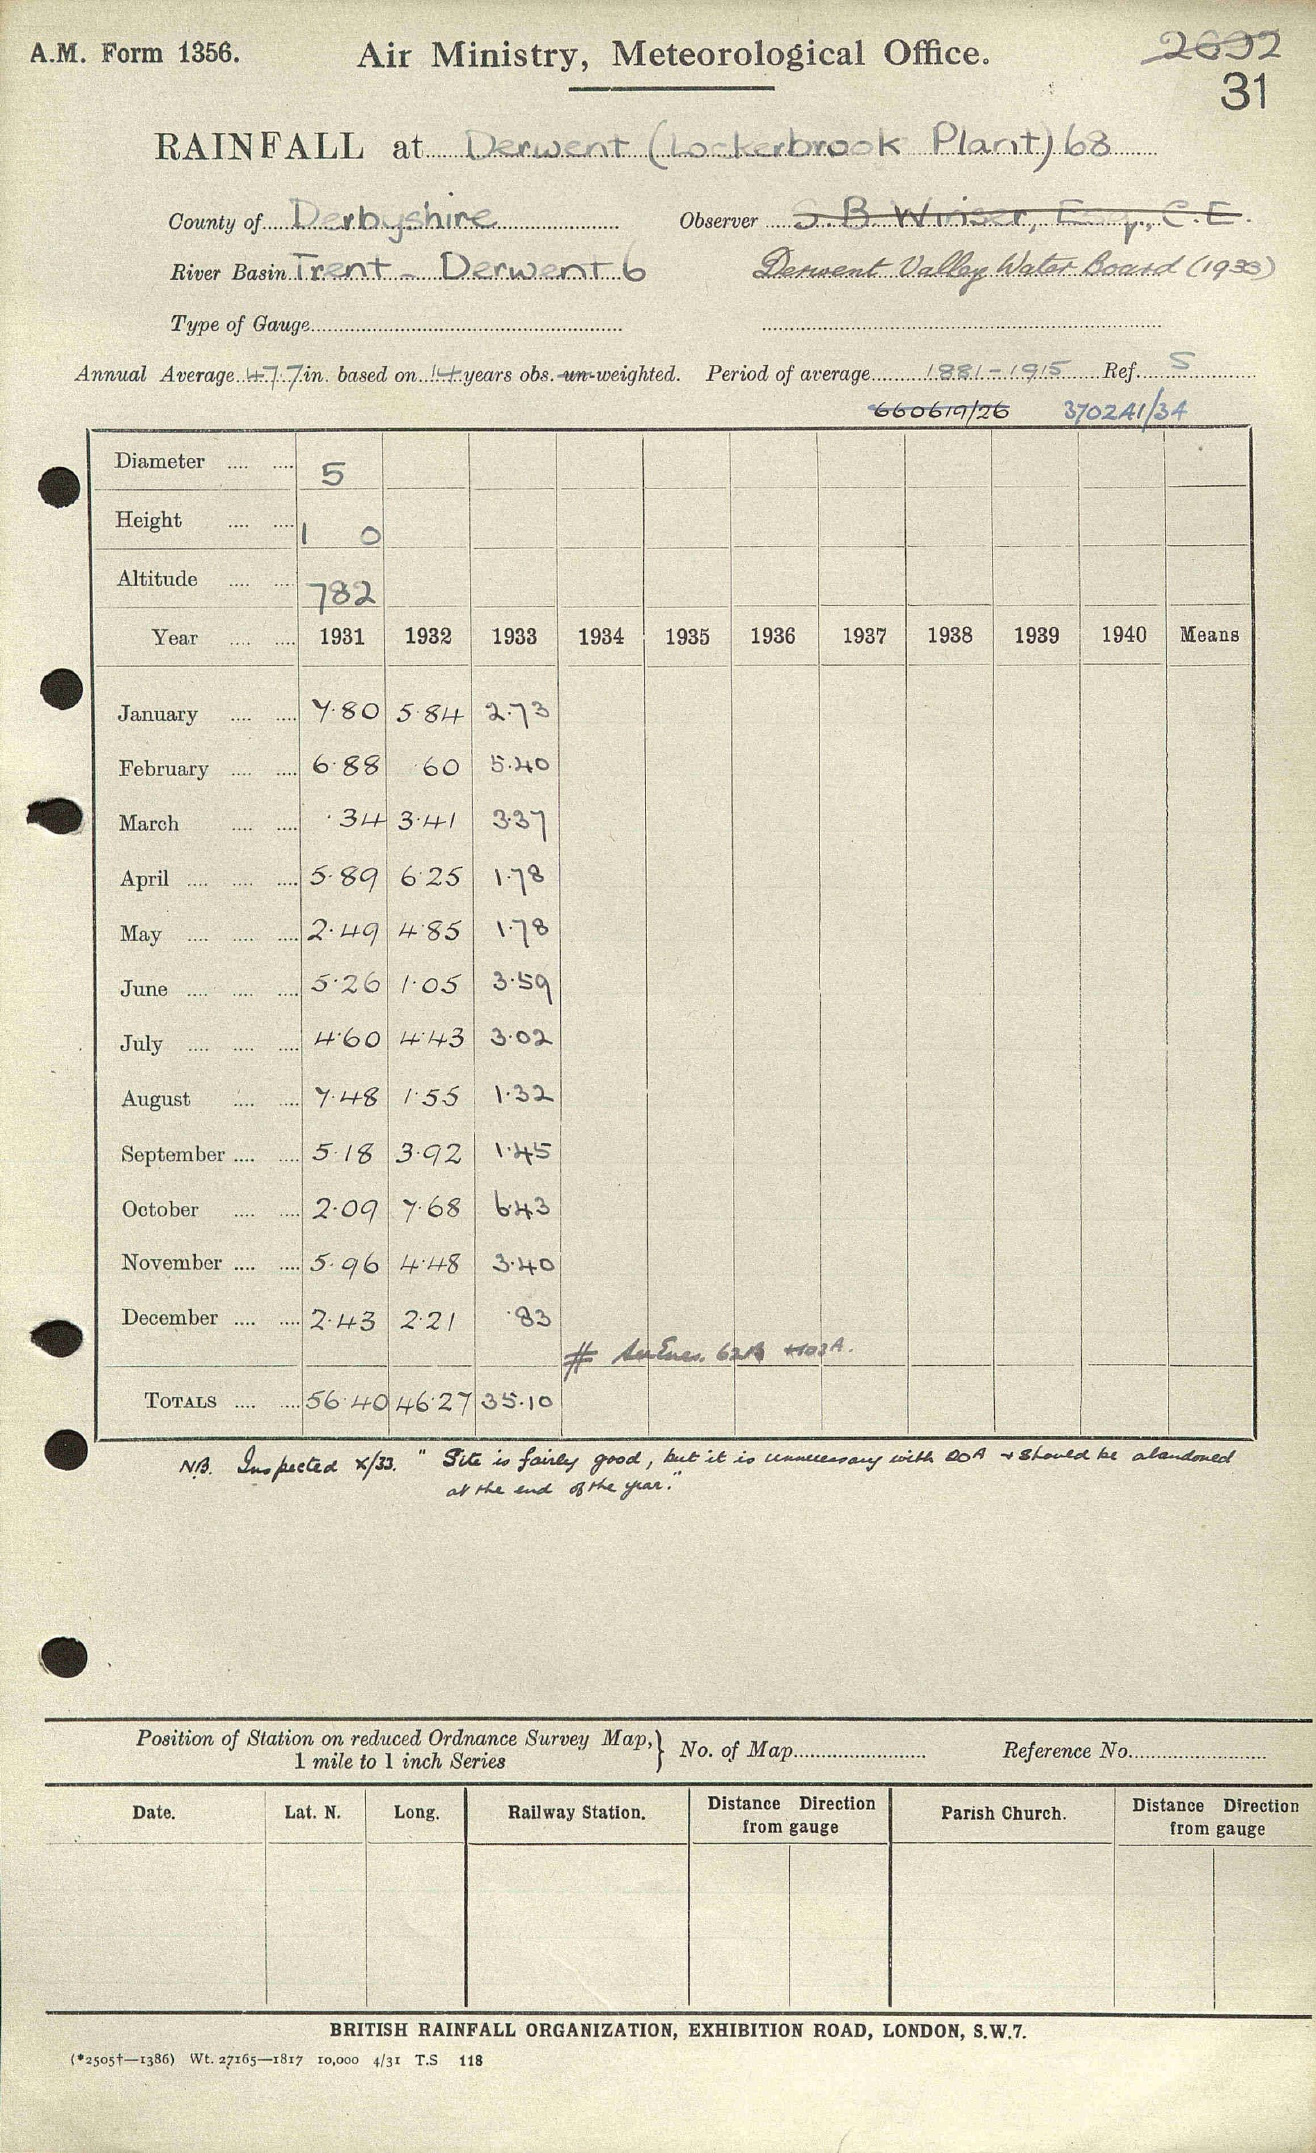 A.M. Form 1356. Air Ministry, Meteorological Office. 2692
31
RAINFALL at Derwent (Lockerbrook Plant) 68
County of Derbyshire Observer S. B. Winser, Esq., C.E.
River Basin Trent - Derwent 6 Derwent Valley Water Board (1933)
Type of Gauge
Annual Average 47.7 in. based on 14 years obs. un-weighted. Period of average 1881-1915 Ref. S
660619/26 370241/34
Diameter 5
Height 1 0
Altitude 782
Year 1931 1932 1933 1934 1935 1936 1937 1938 1939 1940 Means
January 7.80 5.84 2.73
February 6.88 .60 5.40
March .34 3.41 3.37
April 5.89 6.25 1.78
May 2.49 4.85 1.78
June 5.26 1.05 3.59
July 4.60 4.43 3.02
August 7.48 1.55 1.32
September 5.18 3.92 1.45
October 2.09 7.68 6.43
November 5.96 4.48 3.40
December 2.43 2.21 .83
#
TOTALS 56.40 46.27 35.10
N.B. Inspected X/33. "Site is fairly good, but it is unnecessary with & should be abandoned
at the end of the year."
Position of Station on reduced Ordnance Survey Map, } No. of Map Reference No.
1 mile to 1 inch Series
Date. Lat. N. Long. Railway Station. Distance Direction Parish Church. Distance Direction
from gauge from gauge
BRITISH RAINFALL ORGANIZATION, EXHIBITION ROAD, LONDON, S.W.7.
(*2505†—1386) Wt. 27165—1817 10,000 4/31 T.S 118